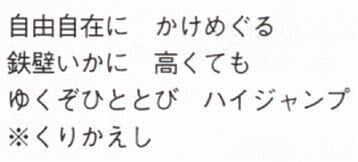 自由自在に　かけめぐる
鉄壁いかに　高くても
ゆくぞひととび　ハイジャンプ
※くりかえし